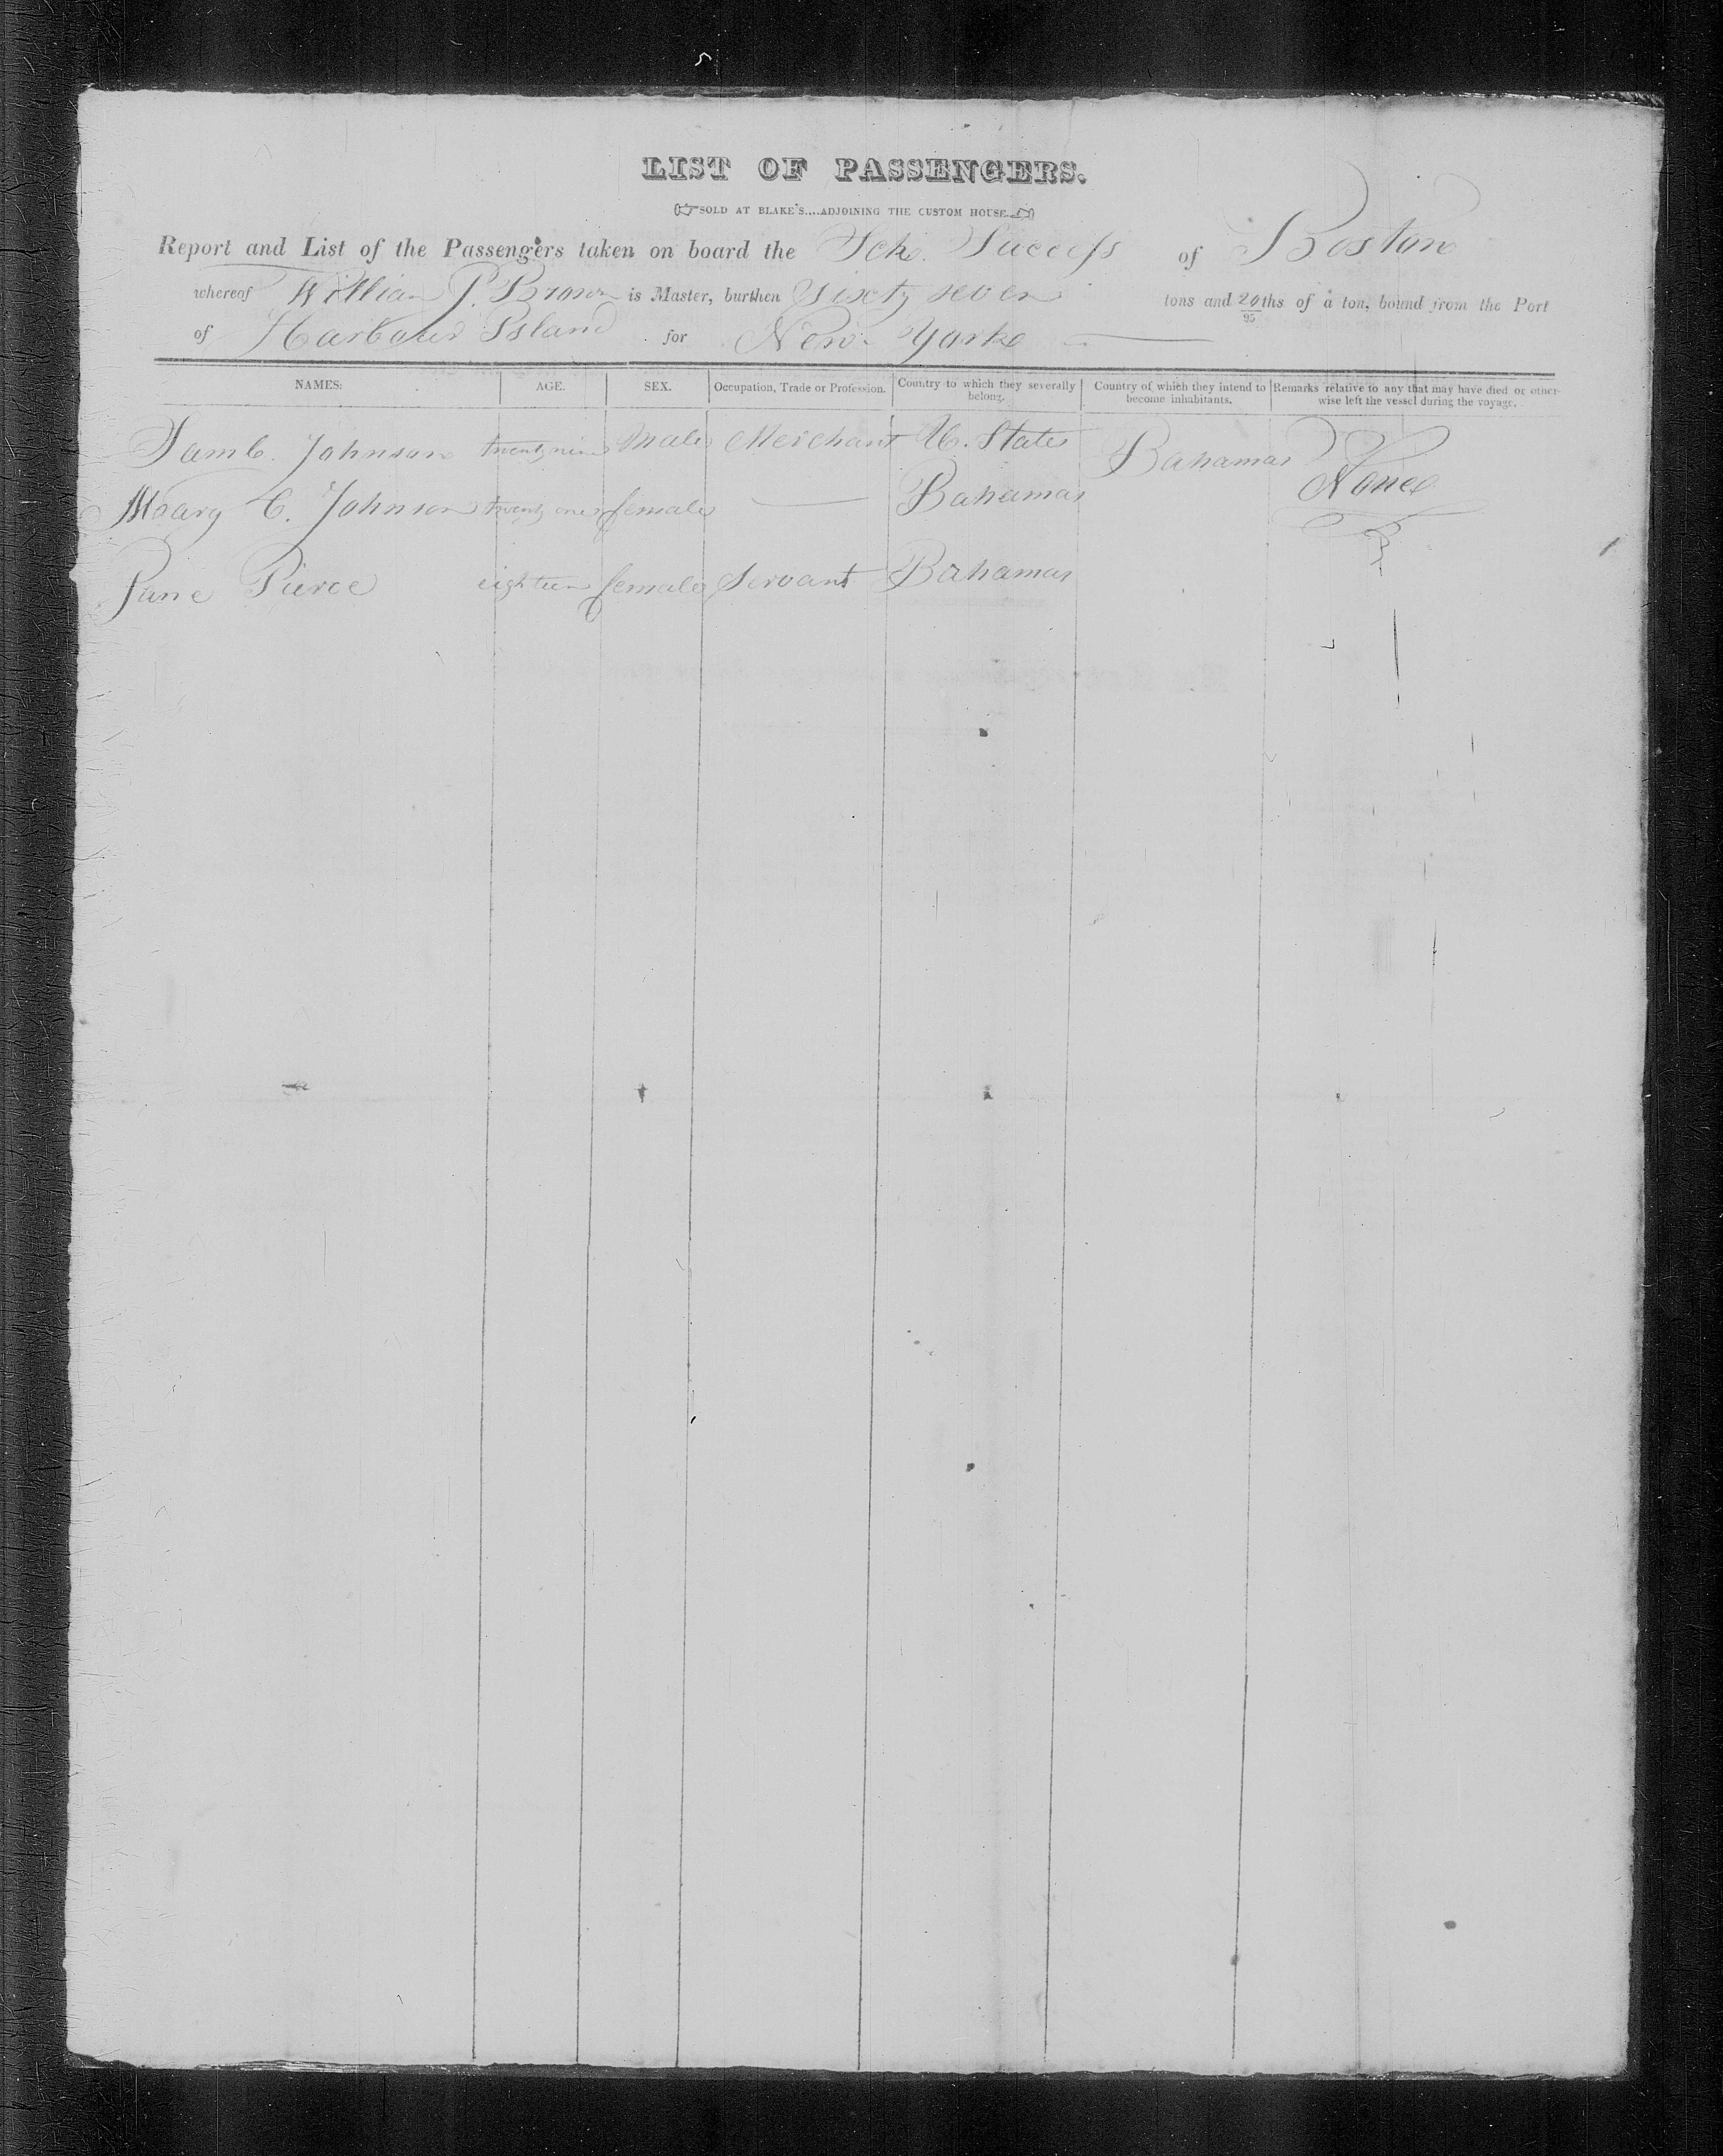 LIST OF PASSENGERS.
SOLD AT BLAKE'S....ADJOINING THE CUSTOM HOUSE.
Report and List of the Passengers taken on board the Sch. Success of Boston
whereof William P. Brown is Master, burthen Sixty seven tons and 20/95ths of a ton, bound from the Port
of Harbour Island for New York
NAMES. AGE. SEX. Occupation, Trade or Profession. Country to which they severally belong. Country of which they intend to become inhabitants. Remarks relative to any that may have died or otherwise left the vessel during the voyage.
Saml. Johnson twenty nine Male Merchant U. States Bahamas None
Meary C. Johnson twenty one female — Bahamas
Jane Pierce eighteen female Servant Bahamas